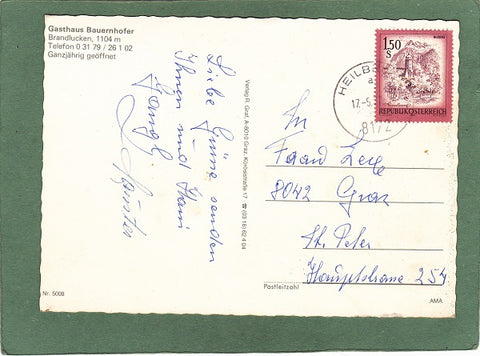 Gasthaus Bauernhofer
Brandlucken, 1104 m
Telefon 0 31 79 / 26 1 02
Ganzjährig geöffnet
Liebe Grüße senden
Ihnen und
Verlag R. Graf, A-8010 Graz, 17 ☎ (03 16) 62 4 04
1.50
S
REPUBLIK ÖSTERREICH
HEILB
17.-5.
8172
An
8042 Graz
St. Peter
Hauptstrasse 254
Postleitzahl
Nr. 5008
AMA